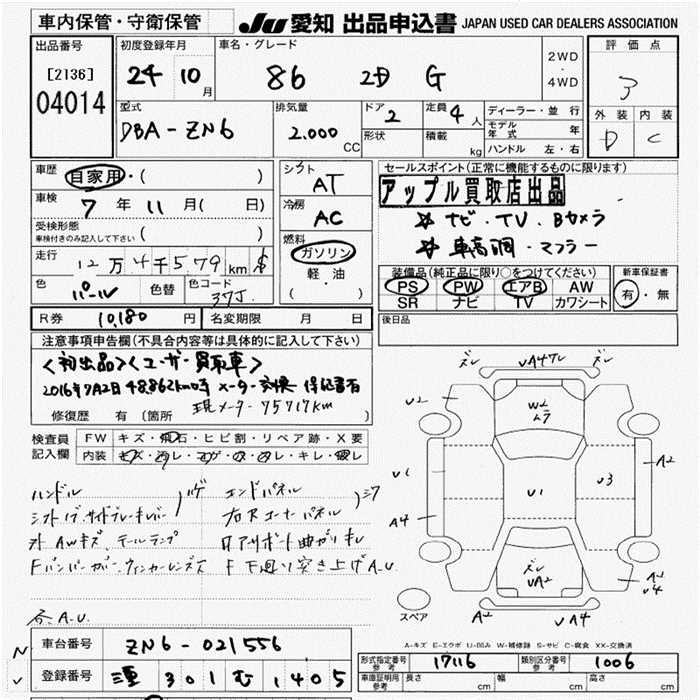 車内保管・守衛保管
JU 愛知 出品申込書 JAPAN USED CAR DEALERS ASSOCIATION
出品番号
[2136]
04014
初度登録年月
24 10月
車名・グレード
86 2D G
2WD
・
4WD
評価点
3
外装 内装
D C
型式
DBA-ZN6
排気量
2.000 CC
ドア 2
形状
定員 4人
積載 kg
ディーラー・並行
モデル年式 年
ハンドル 左・右
車歴 自家用・( )
車検 7年 11月( 日)
受検形態
車検付きのみ記入して下さい ( )
走行 12万4千579km $
色 パール 色替 色コード 37J
R券 10,180円 名変期限 月 日
シフト AT
冷房 AC
燃料
ガソリン
軽・油
( )
セールスポイント(正常に機能するものに限ります)
アップル買取店出品
☆ナビ・TV・Bカメラ
☆車高調・マフラー
装備品(純正品に限り○をつけてください)
PS PW エアB AW
SR ナビ TV カワシート
新車保証書
有・無
後日品
注意事項申告欄(不具合内容等は具体的に記入して下さい)
<初出品><ユーザー買取車>
2016年9月2日 48,862km時 メーター交換 保記書有
現メーター75717km
修復歴 有(箇所
検査員
記入欄
FW キズ・飛石・ヒビ割・リペア跡・X要
内装 キズ・汚レ・コゲ・穴・ヌレ・キレ・破レ
ハンドル
シフトノブ、サイドブレーキレバー ハゲ
外 AWキズ、テールランプ
Fバンパーカバー、ウィンカーレンズズレ
エンドパネル
フロアRコーナーパネル
Rアンダーサポート曲がりキレ
F下廻り突き上げA.U.
各A.U.
ズレ UA4ワレ ズレ
U2
W2
ムラ
U1
A2
U1
U3
A4
ズレ
UA2
A2
U4
A2
UA4
スペア
A-キズ E-エクボ U-凹み W-補修跡 S-サビ C-腐食 XX-交換済
車台番号 ZN6-021556
登録番号 三重 301 む 1405
型式指定番号 参考 17116
類別区分番号 参考 1006
車庫証明用 参考 長さ cm 幅 cm 高さ cm